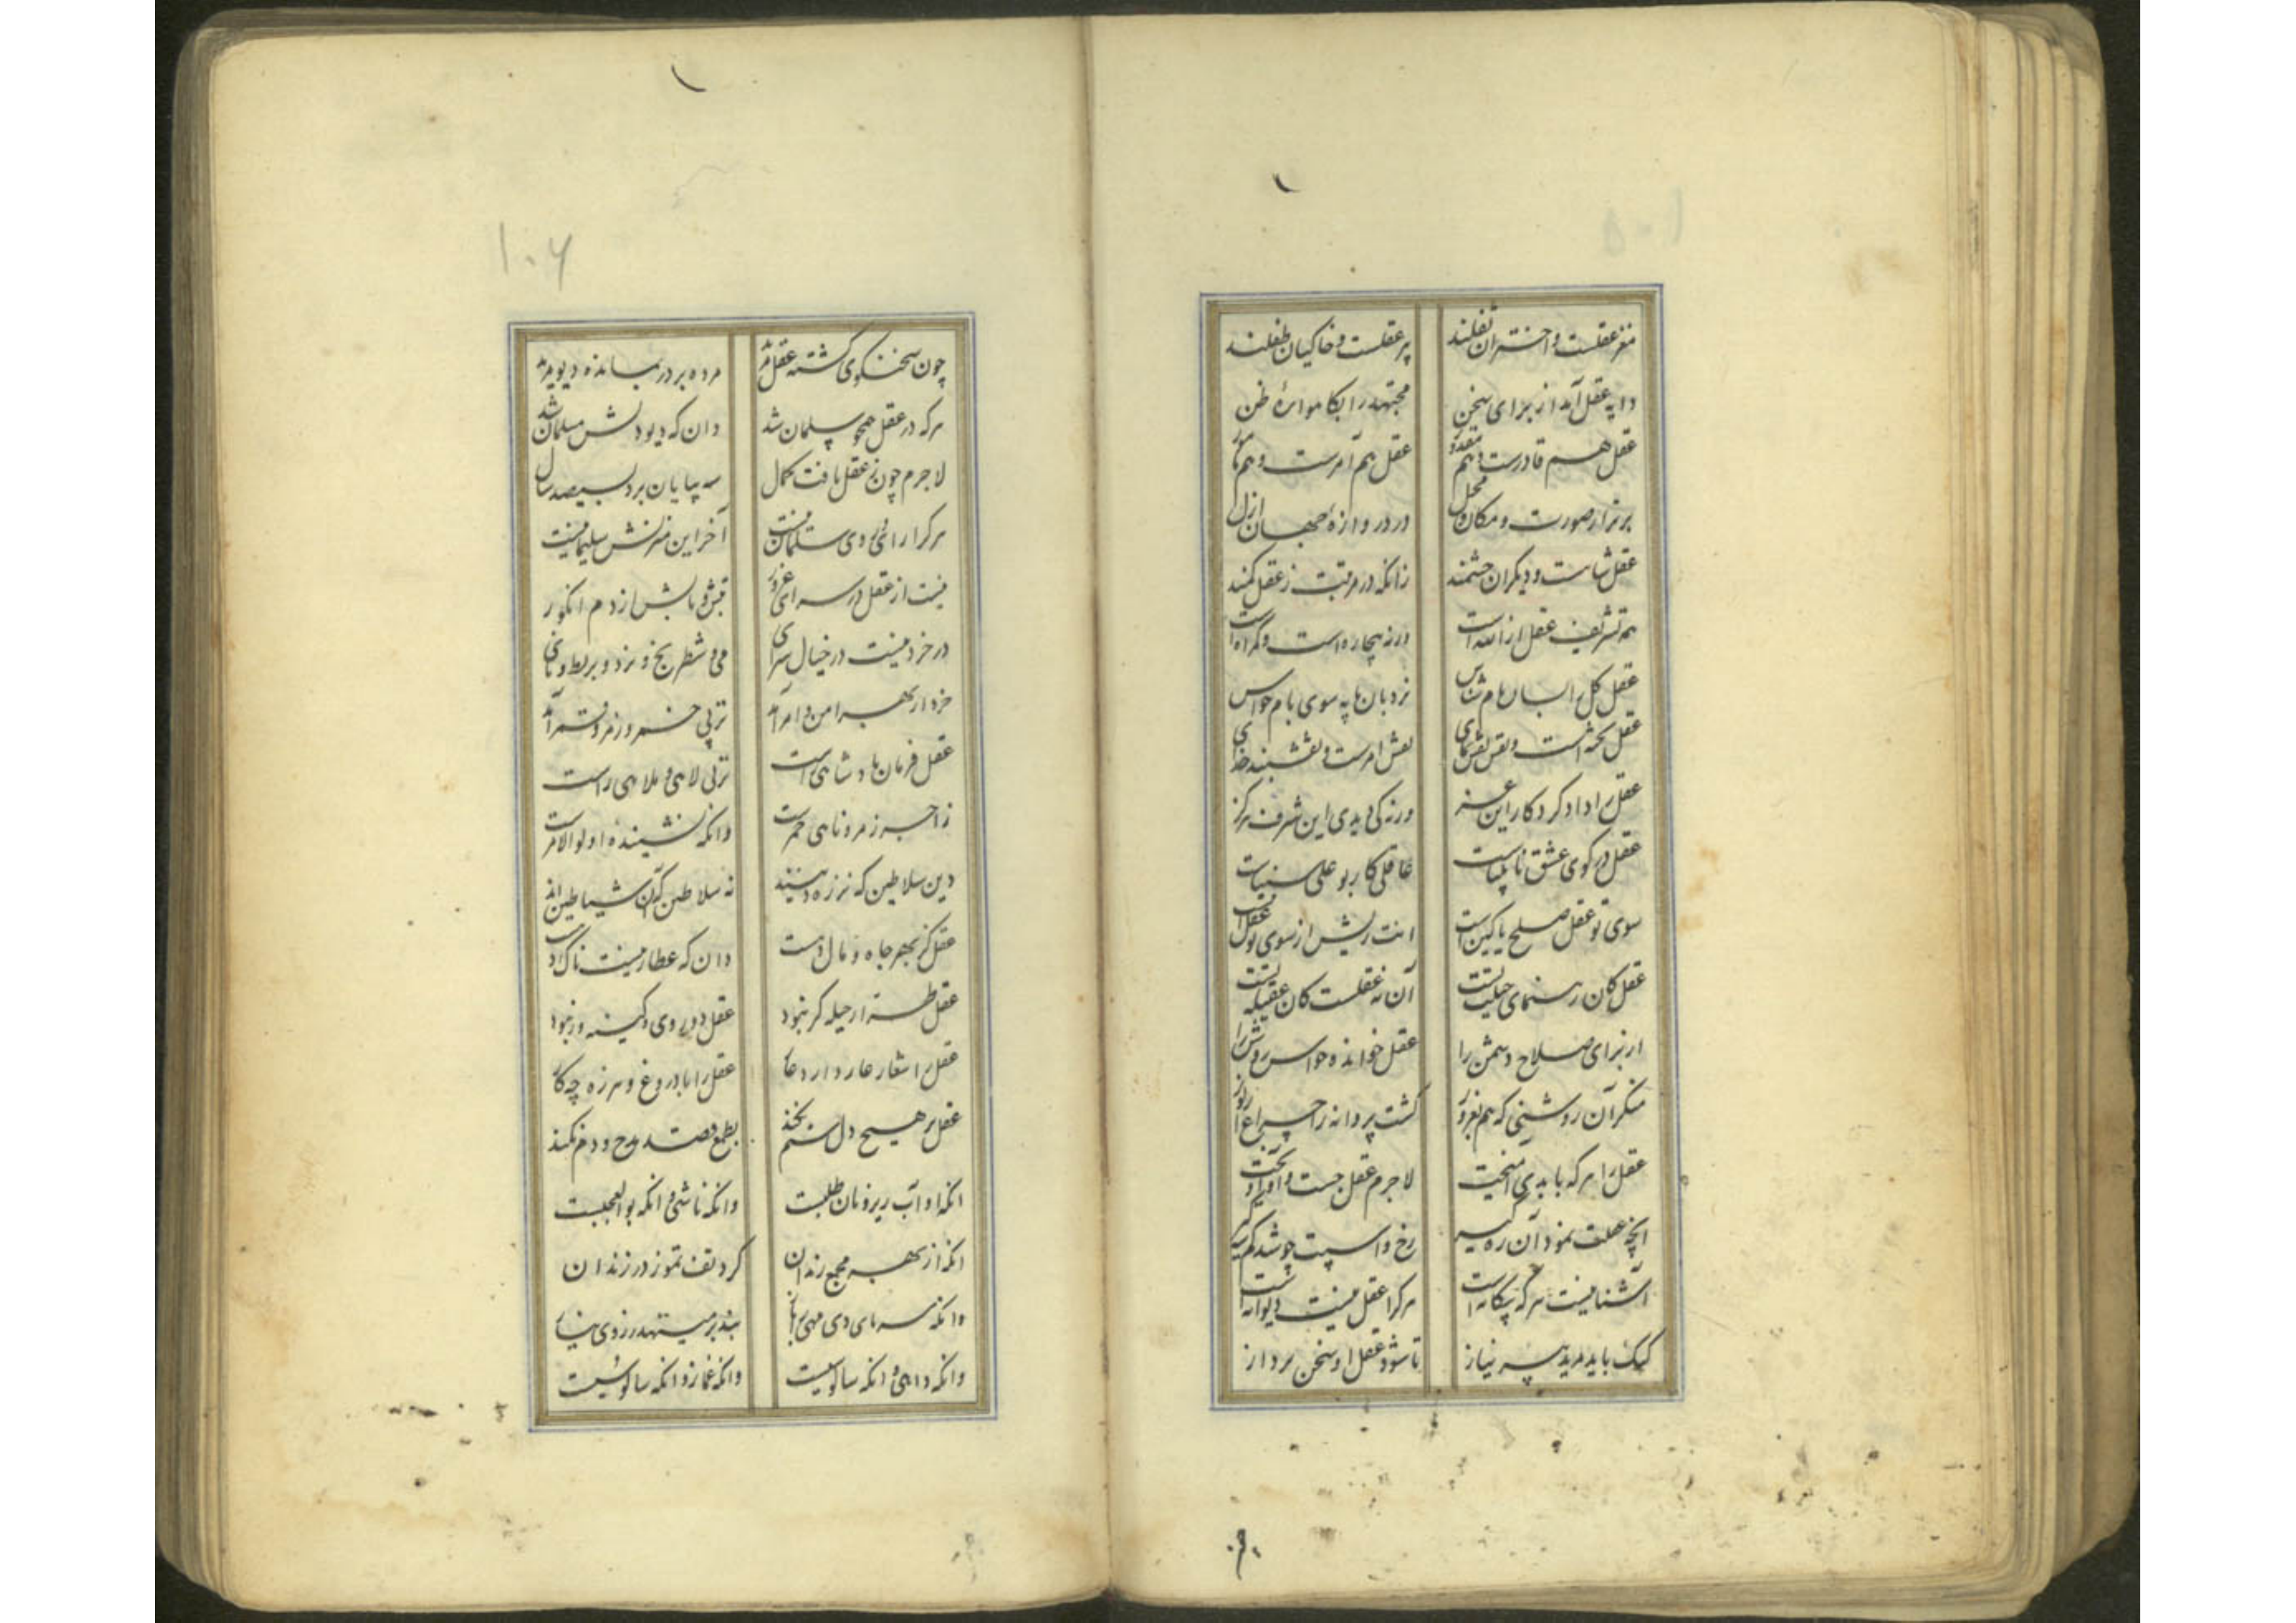 مغز عقلست و اختران تفلند پیر عقلست و خاکیان طفلند
دایه عقل آمد از برای سخن مجتهد را بکاهواره ظن
عقل هم قادرست و هم مقدور عقل هم آمرست و هم مأمور
برتر از صورت و مکان و محل در دروازهٔ جهان ازل
عقل شاهست و دیگران حشمند زانکه در مرتبت ز عقل کمند
همه تشریف عقل از الله است ورنه بیچاره است و گمراه است
عقل کل را بسان بام شناس نردبان پایه سوی بام حواس
عقل تخته است و نفس نقش نمای نقش امرست و نقشبند خدای
عقل را داد کردکار این عز ورنه کی دیدی این شرف هرگز
عقل در کوی عشق نابیناست عاقلی کار بوعلی سیناست
سوی تو عقل صلح یا کین است اینت ریش از سوی تو عقل
عقل کان رهنمای حیلت تست آن نه عقلست کان عقیله تست
از برای صلاح دشمن را عقل خوانده حواس روشن را
منگر آن روشنی که هم بغرور گشت پروانه را چراغ از نور
عقل را هر که با بدی آمیخت لاجرم عقل جست و آویخت
آنچه عقلت نمود آن ره گیر رخ و اسپت چو شد کم
آشنا نیست هر که بیگانه است هر کرا عقل نیست دیوانه است
لیک باید مرید پیر نیاز تا شود عقل او سخن پرداز
۱۰۶
چون سخن‌گوی گشته عقل مرده بر در بمانده دیو مرید
هر که در عقل همچو سلمان شد دان که دیو دلش مسلمان شد
لاجرم چون ز عقل یافت کمال سه بپایان برد بسیصد سال
هر کرا رای و روی سلمان نیست آخر این منزلش سلیمانیست
نیست از عقل در سرای غرور قبض و بسطش از دم انگور
در خرد نیست در خیال سرای می و شطرنج و نرد و بربط و نای
خرد از بهر امن و امر آمد نز پی خمر و زمر و قمر آمد
عقل فرمان پادشاهی راست نز پی لاهی و ملاهی راست
زاجر زمر و ناهی خمرست وانکه نشینده اولو الامرست
دین سلاطین که در رهند نه سلاطین که آن شیاطین‌اند
عقل کز بهر جاه و مال و دست دان که عطار نیست
عقل طرار و حیله گر نبود عقل دو روی و کینه ور نبود
عقل را شعار عار دارد عار عقل را با دروغ و هرزه چه کار
عقل بر هیچ دل ستم نکند بطمع قصد مدح و ذم نکند
آنکه او آب ریز و نان طلبست وانکه ناشی و آنکه بوالعجبست
آنکه از بهر مجمع رندان کرد تف تموز در زندان
وانکه سرمای دی بند بر می‌نهد ز دی
وانکه داهی و آنکه سالوسیست وانکه غماز و آنکه سالوسیست